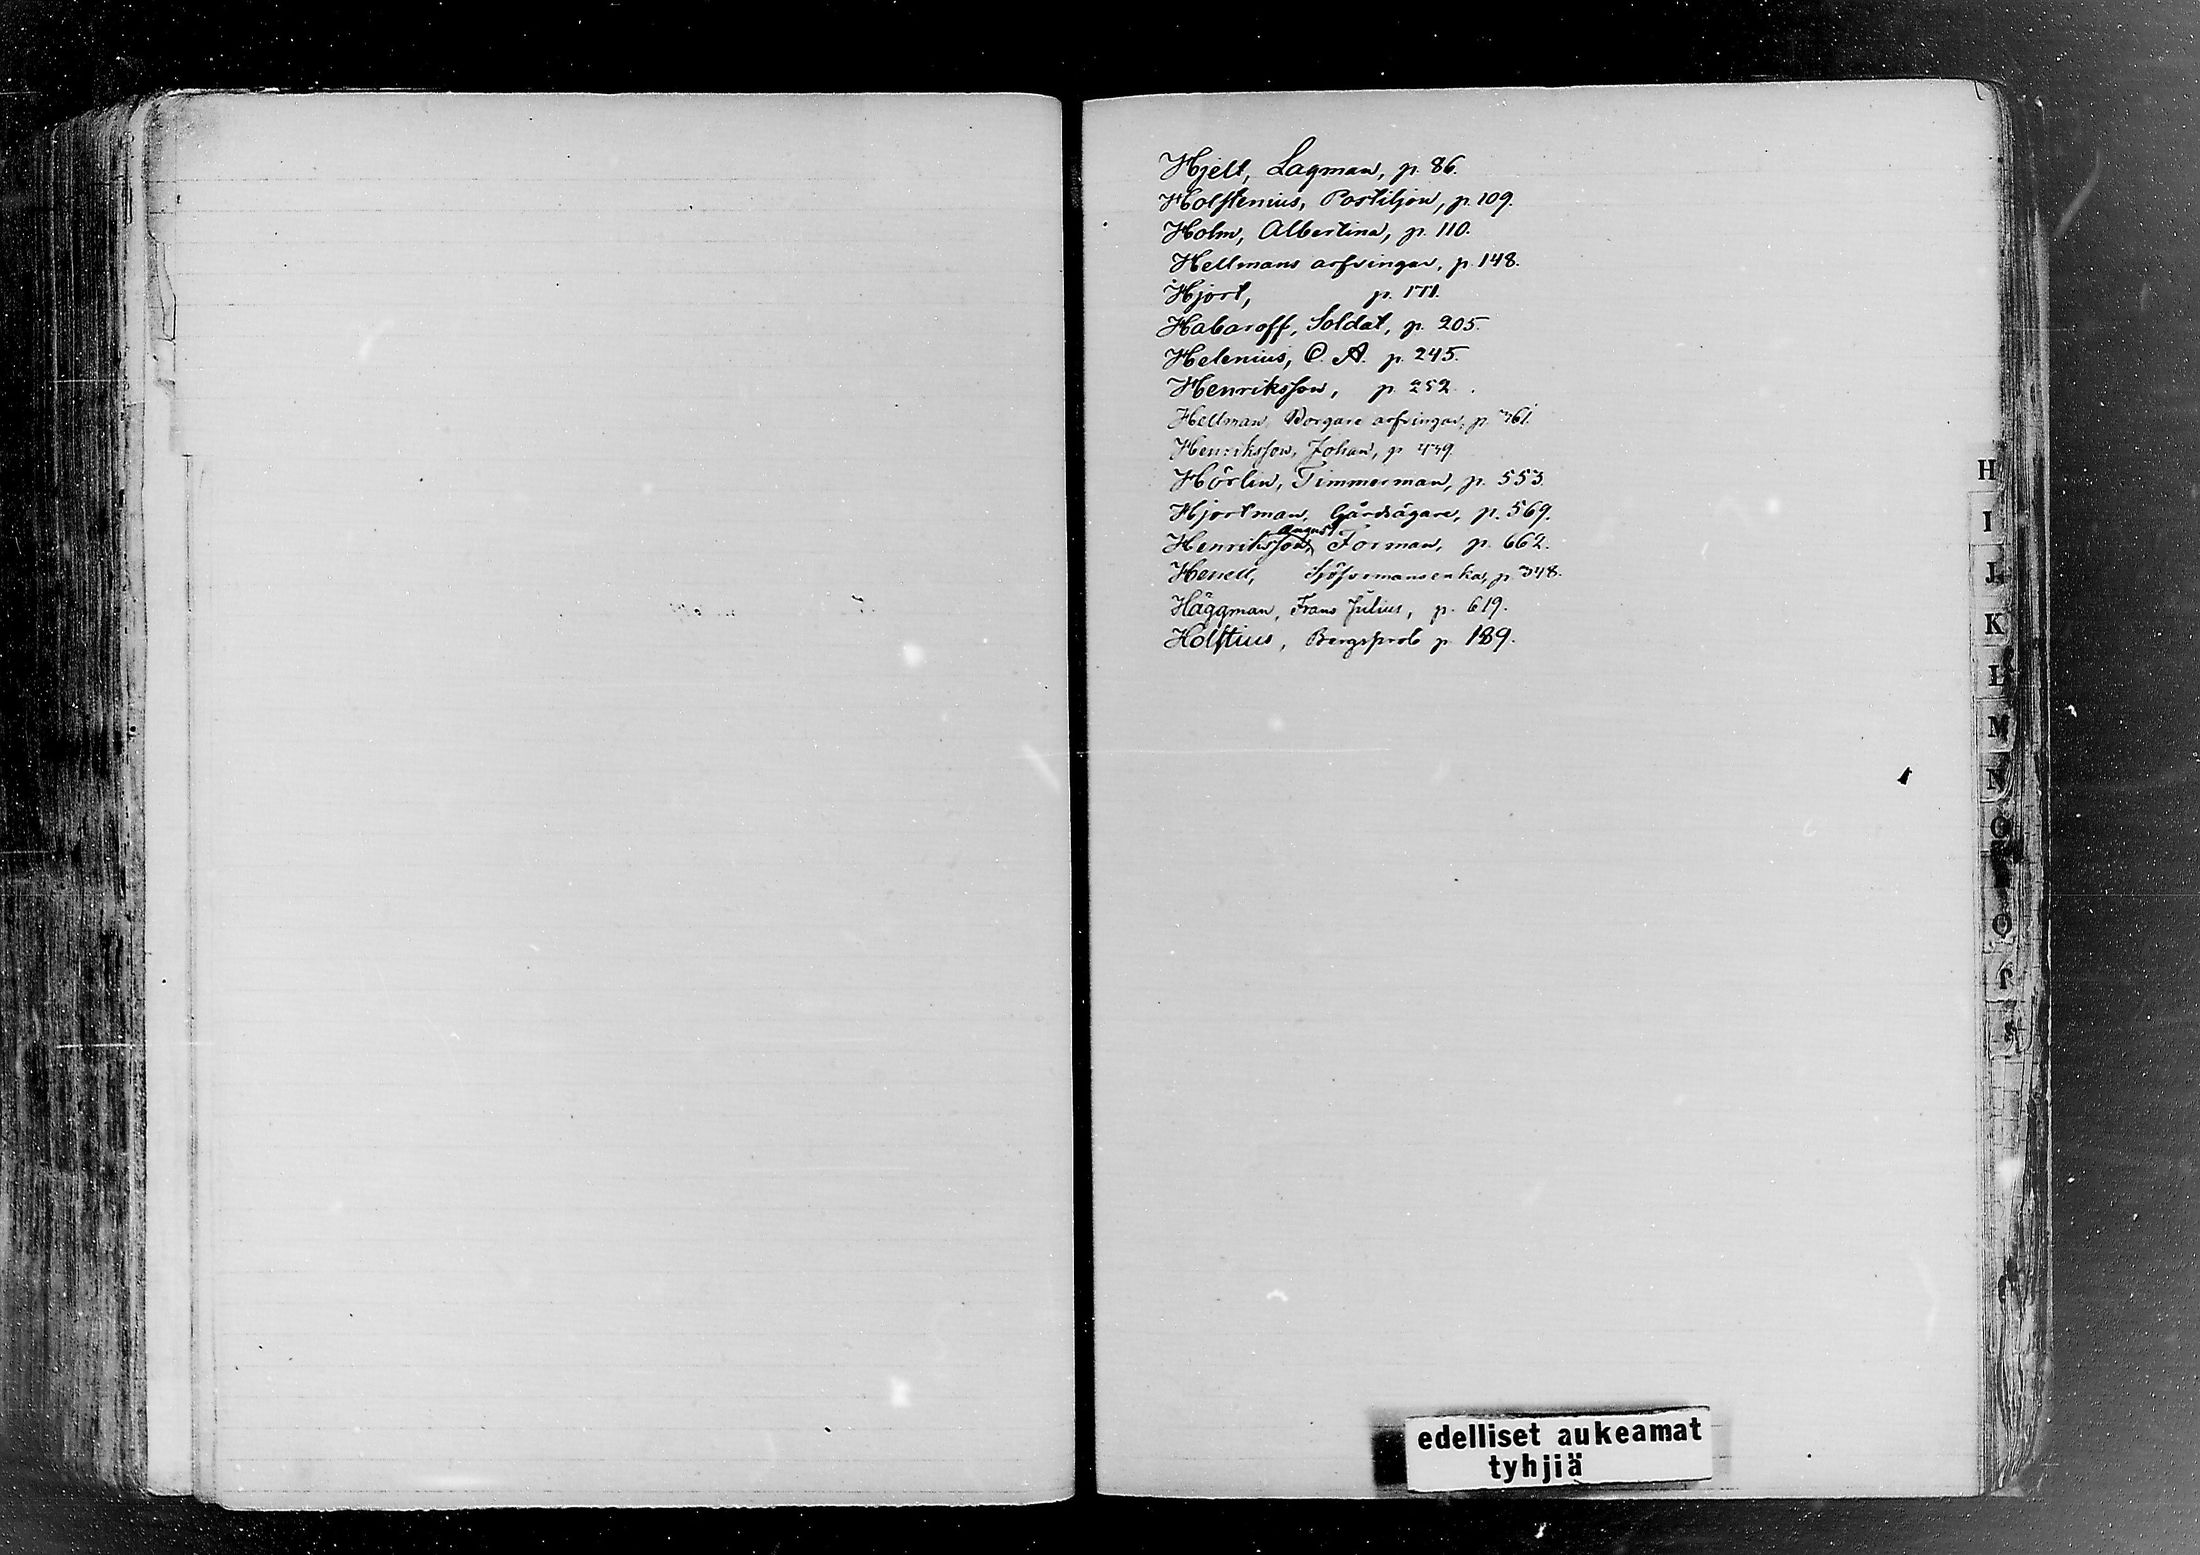 Hjelt, Lagman, p. 86.
Holstenius, Postiljon, p. 109.
Holm, Albertina, p. 110.
Hellmans arfvingar, p. 148.
Hjort, p. 171.
Habaroff, Soldat, p. 205.
Helenius, C. A. p. 245.
Henriksson, p. 252.
Hellman, Borgare arfvingar, p. 361.
Henriksson, Johan, p. 439.
Hörlin, Timmerman, p. 553
Hjortman, Gårdsägare, p. 569.
August
Henriksson, Forman, p. 662.
Sjöformansenka, p. 348.
Häggman, Frans Julius, p. 619.
Holstius, p. 189.
H
I
J
K
L
M
N
O
P
edelliset aukeamat
tyhjiä